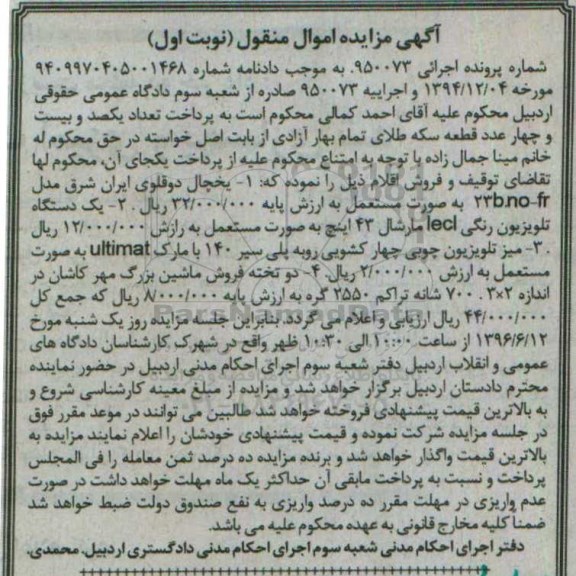 آگهی مزایده اموال منقول (نوبت اول)
شماره پرونده اجرائی ۹۵۰۰۷۳. به موجب دادنامه شماره ۹۴۰۹۹۷۰۴۰۵۰۰۱۴۶۸
مورخه ۱۳۹۴/۱۲/۰۴ و اجراییه ۹۵۰۰۷۳ صادره از شعبه سوم دادگاه عمومی حقوقی
اردبیل محکوم علیه آقای احمد کمالی محکوم است به پرداخت تعداد یکصد و بیست
و چهار عدد قطعه سکه طلای تمام بهار آزادی از بابت اصل خواسته در حق محکوم له
خانم مینا جمال زاده با توجه به امتناع محکوم علیه از پرداخت یکجای آن، محکوم لها
تقاضای توقیف و فروش اقلام ذیل را نموده که: ۱- یخچال دوقلوی ایران شرق مدل
۲۳b.no-fr به صورت مستعمل به ارزش پایه ۳۲/۰۰۰/۰۰۰ ریال . ۲- یک دستگاه
تلویزیون رنگی lecl مارشال ۴۳ اینچ به صورت مستعمل به رازش ۱۲/۰۰۰/۰۰۰ ریال
.۳- میز تلویزیون چوبی چهار کشویی رویه پلی سیر ۱۴۰ با مارک ultimat به صورت
مستعمل به ارزش ۲/۰۰۰/۰۰۰ ریال. ۴- دو تخته فروش ماشین بزرگ مهر کاشان در
اندازه ۲×۳ . ۷۰۰ شانه تراکم ۲۵۵۰ گره به ارزش پایه ۸/۰۰۰/۰۰۰ ریال که جمع کل
۴۴/۰۰۰/۰۰۰ ریال ارزیابی و اعلام می گردد. بنابراین جلسه مزایده روز یک شنبه مورخ
۱۳۹۶/۶/۱۲ از ساعت ۱۰:۰۰ الی ۱۰:۳۰ ظهر واقع در شهرک کارشناسان دادگاه های
عمومی و انقلاب اردبیل دفتر شعبه سوم اجرای احکام مدنی اردبیل در حضور نماینده
محترم دادستان اردبیل برگزار خواهد شد و مزایده از مبلغ معینه کارشناسی شروع و
به بالاترین قیمت پیشنهادی فروخته خواهد شد طالبین می توانند در موعد مقرر فوق
در جلسه مزایده شرکت نموده و قیمت پیشنهادی خودشان را اعلام نمایند مزایده به
بالاترین قیمت واگذار خواهد شد و برنده مزایده ده درصد ثمن معامله را فی المجلس
پرداخت و نسبت به پرداخت مابقی آن حداکثر یک ماه مهلت خواهد داشت در صورت
عدم واریزی در مهلت مقرر ده درصد واریزی به نفع صندوق دولت ضبط خواهد شد
ضمنا کلیه مخارج قانونی به عهده محکوم علیه می باشد.
دفتر اجرای احکام مدنی شعبه سوم اجرای احکام مدنی دادگستری اردبیل. محمدی.